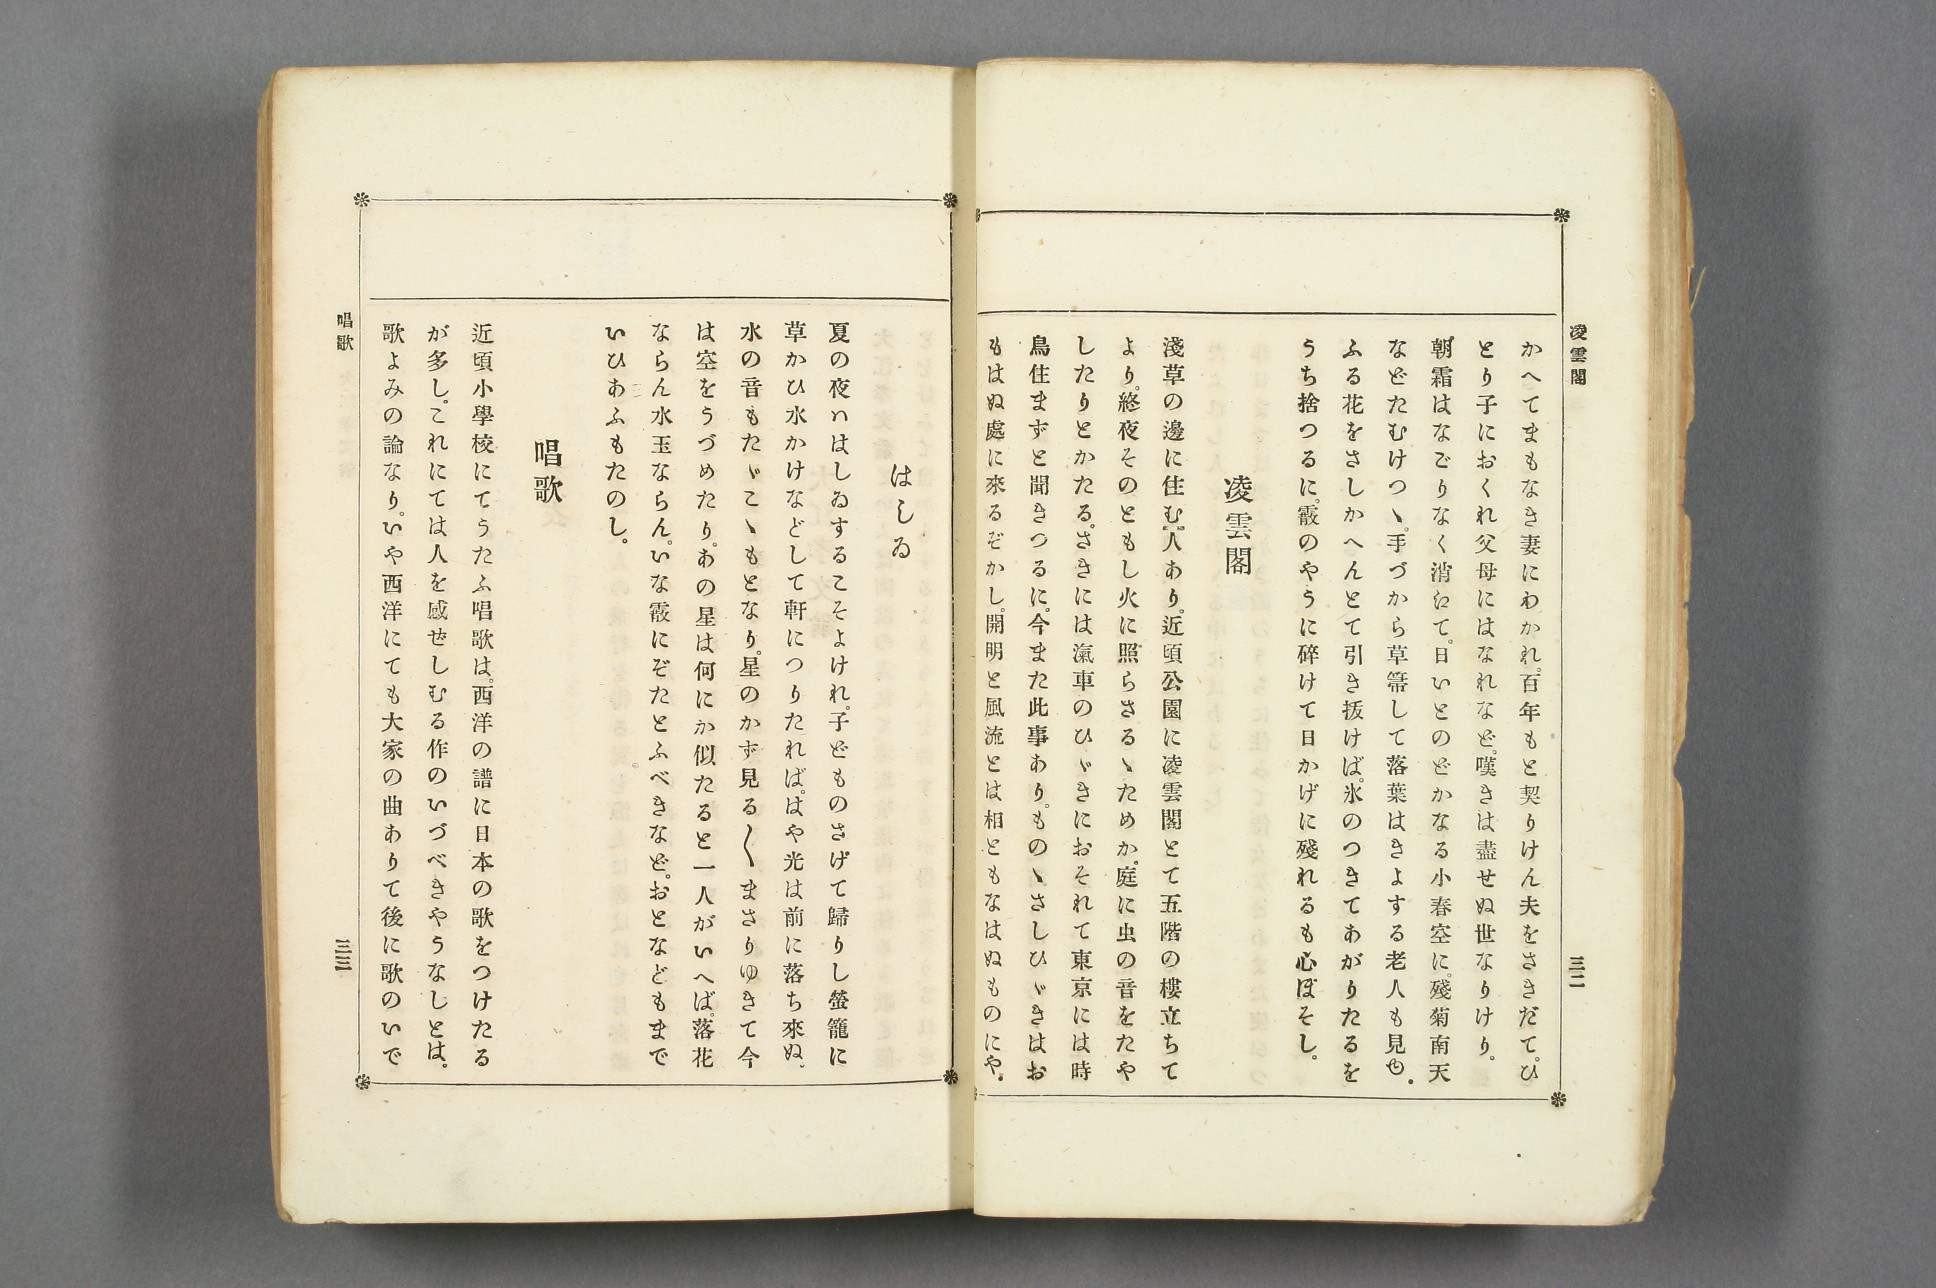 凌雲閣
三二
かへてまもなき妻にわかれ。百年もと契りけん夫をさきだて。ひ
とり子におくれ父母にはなれなど。嘆きは盡せぬ世なりけり。
朝霜はなごりなく消江て。日いとのどかなる小春空に。殘菊南天
などたむけつゝ。手づから草箒して落葉はきよする老人も見ゆ。
ふる花をさしかへんとて引き拔けば。氷のつきてあがりたるを
うち捨つるに。霰のやうに碎けて日かげに殘れるも心ぼそし。
凌雲閣
淺草の邊に住む人あり。近頃公園に凌雲閣とて五階の樓立ちて
より。終夜そのともし火に照らさるゝためか。庭に虫の音をたや
したりとかたる。さきには滊車のひゞきにおそれて東京には時
鳥住まずと聞きつるに。今また此事あり。ものゝさしひゞきはお
もはぬ處に來るぞかし。開明と風流とは相ともなはぬものにや。
はしゐ
夏の夜ハはしゐするこそよけれ。子どものさげて歸りし螢籠に
草かひ水かけなどして軒につりたれば。はや光は前に落ち來ぬ。
水の音もたゞこゝもとなり。星のかず見る〱まさりゆきて今
は空をうづめたり。あの星は何にか似たると一人がいへば。落花
ならん水玉ならん。いな霰にぞたとふべきなど。おとなどもまで
いひあふもたのし。
唱歌
近頃小學校にてうたふ唱歌は。西洋の譜に日本の歌をつけたる
が多し。これにては人を感ぜしむる作のいづべきやうなしとは。
歌よみの論なり。いや西洋にても大家の曲ありて後に歌のいで
唱歌
三三